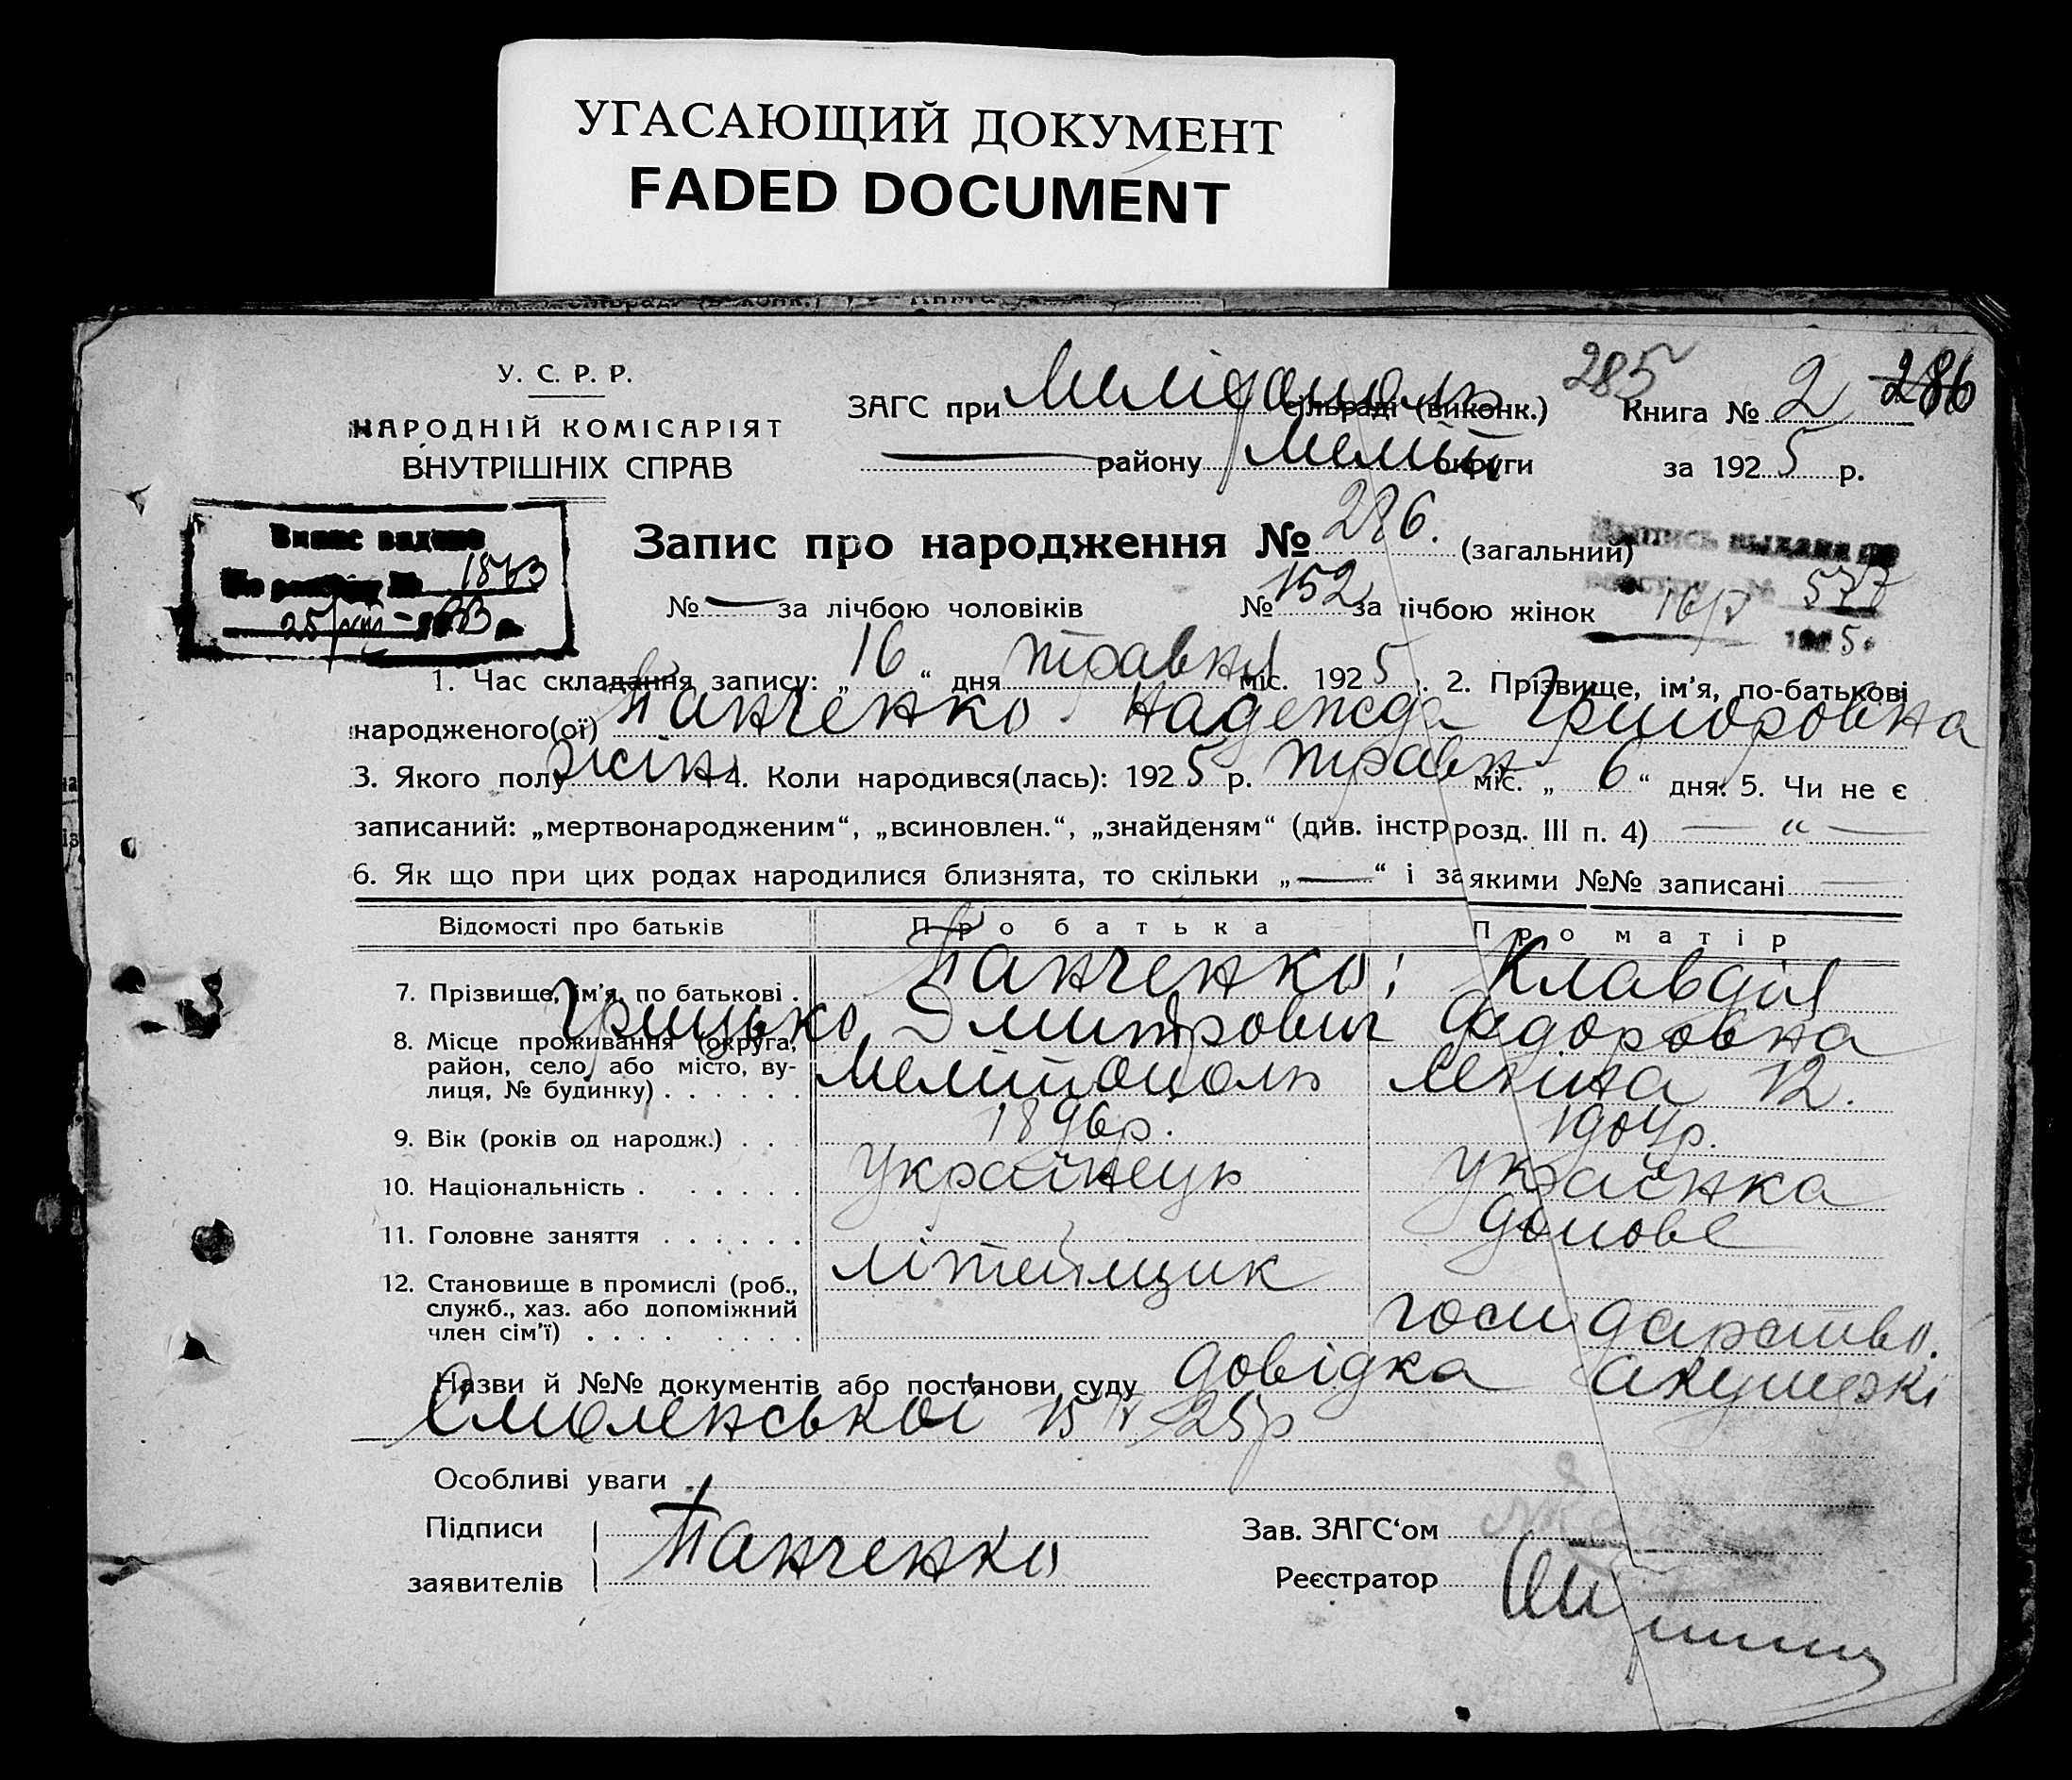 УГАСАЮЩИЙ ДОКУМЕНТ
FADED DOCUMENT
У. С. Р. Р.
НАРОДНІЙ КОМІСАРІЯТ
ВНУТРІШНІХ СПРАВ
ЗАГС при Мелітополь сільраді (виконк.)
285
Книга № 2 286
району Меліт округи за 1925 р.
Випис видано
По реєстру № 1873
25/VIII-33 р
Запис про народження № 286. (загальний)
Выпись выдана по
реестру № 577
16/V 1925.
№ — за лічбою чоловіків № 152 за лічбою жінок
1. Час складання запису: „16“ дня травня міс. 1925. 2. Прізвище, ім'я, по-батькові
народженого(ої) Панченко Надежда Григоровна
3. Якого полу жін. 4. Коли народився(лась): 1925 р. травн міс. „6“ дня. 5. Чи не є
записаний: „мертвонародженим“, „всиновлен.“, „знайденям“ (див. інстр розд. III п. 4) — „ —
6. Як що при цих родах народилися близнята, то скільки „—“ і за якими №№ записані —
Відомості про батьків Про батька Про матір
7. Прізвище, ім'я, по батькові . Панченко; Клавдія
Грицько Дмитрович Федоровна
8. Місце проживання (округа,
район, село, або місто, ву-
лиця, № будинку) . . . . . . Мелітополь Леніна 12.
9. Вік (років од народж.) . . . 1896р. 1904р.
10. Національність . . . . . . українець українка
11. Головне заняття . . . . . . домове
літейщик
12. Становище в промислі (роб.,
служб., хаз. або допоміжний
член сім'ї) . . . . . . . . господарство.
Назви й №№ документів або постанови суду довідка акушерки
Смоленської 15 V 25р
Особливі уваги
Підписи
заявителів
Панченко
Зав. ЗАГС'ом
Реєстратор